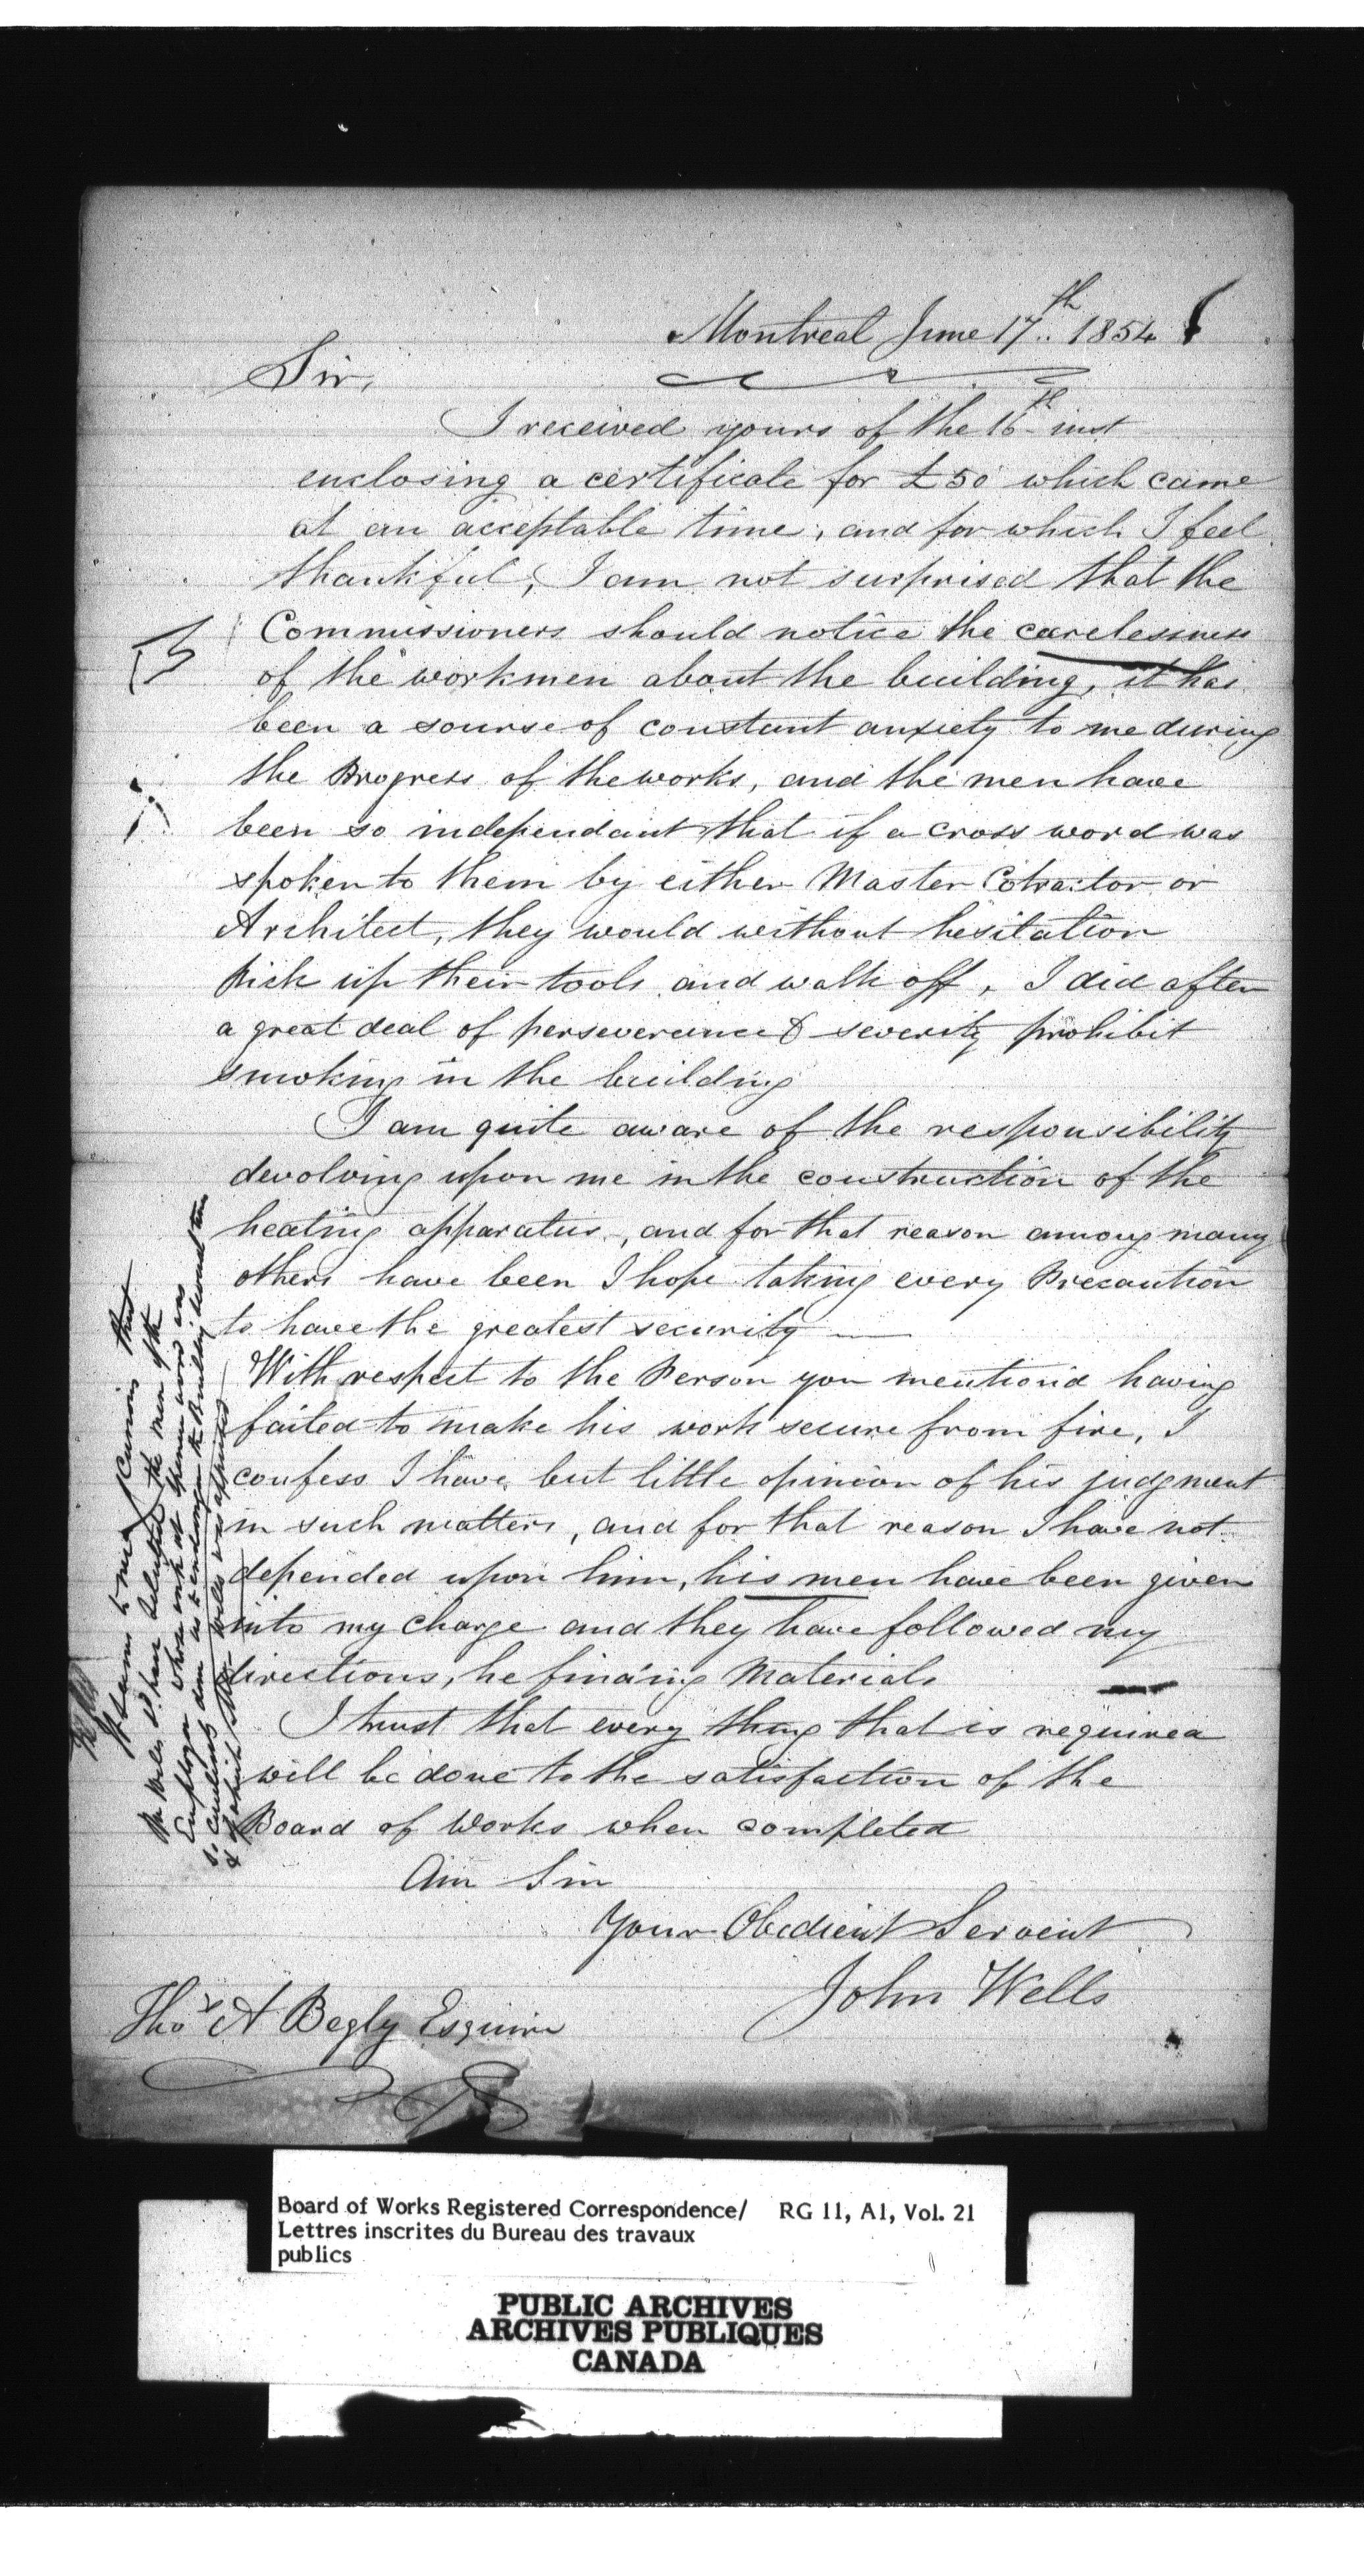 Montreal June 17th 1854
Sir,
I received yours of the 16th inst
enclosing a certificate for £50 which came
at an acceptable time, and for which I feel
thankful, I am not surprised that the
Commissioners should notice the carelessness
of the workmen about the building, it has
been a sourse of constant anxiety to me during
the Progress of the works, and the men have
been so independant that if a cross word was
spoken to them by either Master Cotractor or
Architect, they would without hesitation
Pick up their tools and walk off, I did after
a great deal of perseverance & severity prohibit
smoking in the building
I am quite aware of the responsibility
devolving upon me in the construction of the
heating apparatus, and for that reason among many
others have been I hope taking every Precaution
to have the greatest security
With respect to the Person you mention'd having
failed to make his work secure from fire, I
confess I have but little opinion of his judgment
in such matters, and for that reason I have not
depended upon him, his men have been given
into my charge and they have followed my
directions, he finding Materials
I trust that every thing that is required
will be done to the satisfaction of the
Board of Works when completed
Am Sir
Your Obedient Servent
John Wells
Thos A Begly Esquire
It seems to me curious that
Mr Wells sh. have selected the men of the
Employer whose work at Spencer wood was
so carelessly done as to endanger the Building several times
& of which Mr Wells was apprised
Board of Works Registered Correspondence/ RG 11, A1, Vol. 21
Lettres inscrites du Bureau des travaux
publics
PUBLIC ARCHIVES
ARCHIVES PUBLIQUES
CANADA